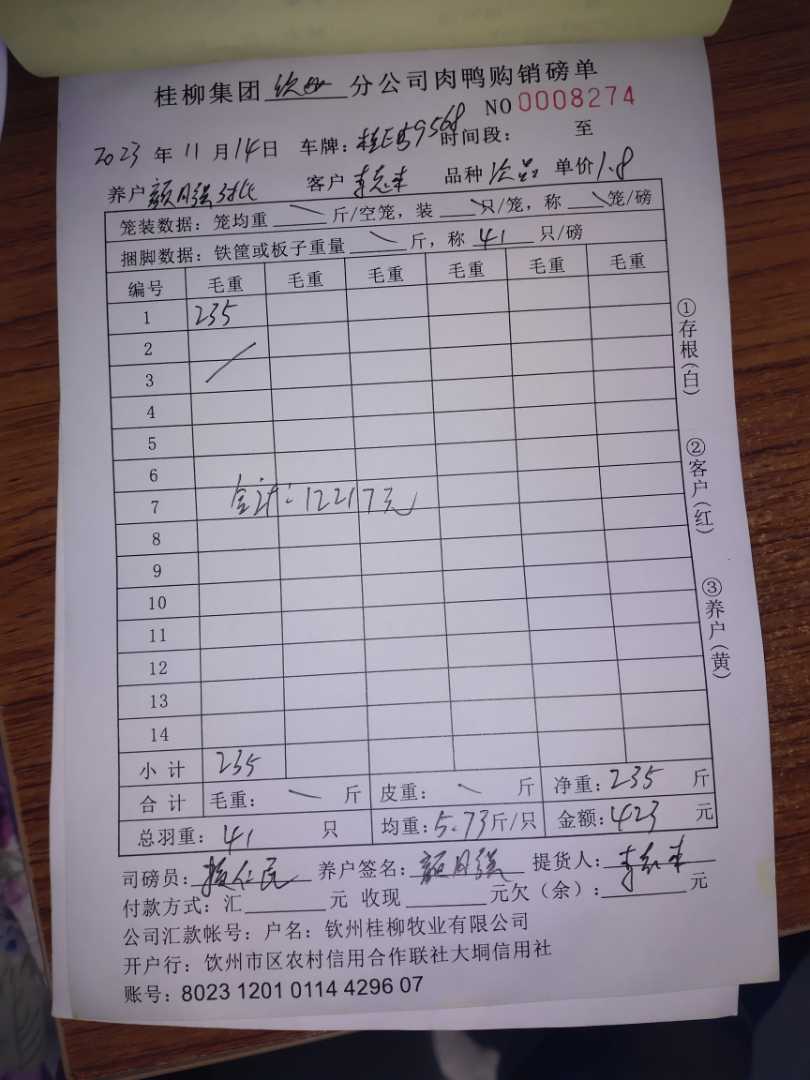 桂柳集团钦州分公司肉鸭购销磅单
NO 0008274
2023年11月14日 车牌：桂E59568 时间段： 至
养户 客户 品种次品 单价1.8
笼装数据：笼均重 斤/空笼，装 只/笼，称 笼/磅
捆脚数据：铁筐或板子重量 斤，称 41 只/磅
编号 毛重 毛重 毛重 毛重 毛重 毛重
1 235
2
3
4
5
6
7 合计：12217元
8
9
10
11
12
13
14
小计 235
合计 毛重： 斤 皮重： 斤 净重：235 斤
总羽重：41 只 均重：5.73斤/只 金额：423 元
司磅员： 养户签名： 提货人：
付款方式：汇 元 收现 元欠（余）： 元
公司汇款帐号：户名：钦州桂柳牧业有限公司
开户行：饮州市区农村信用合作联社大垌信用社
账号：8023 1201 0114 4296 07
①存根（白）
②客户（红）
③养户（黄）